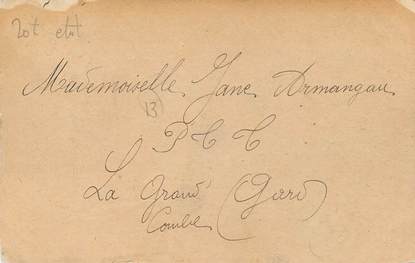 20t etat
Mademoiselle Jane Armangau
13
P C C
La Grand' (Gard)
Combe